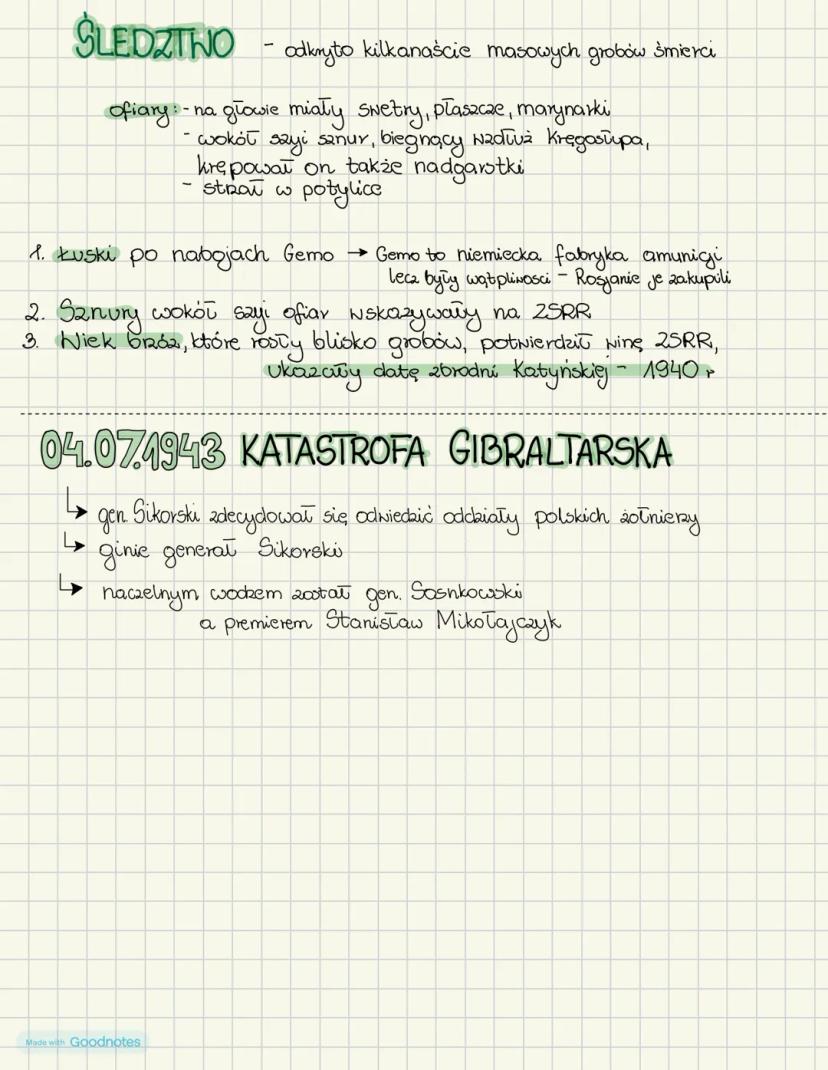 ŚLEDZTWO - odkryto kilkanaście masowych grobów śmierci
ofiary: - na głowie miały swetry, płaszcze, marynarki
- wokół szyi sznur, biegnący wzdłuż kręgosłupa,
krępował on także nadgarstki
- strzał w potylice
1. Łuski po nabojach Gemo → Gemo to niemiecka fabryka amunicji
lecz były wątpliwosci - Rosjanie je zakupili
2. Sznury wokół szyi ofiar wskazywały na ZSRR
3. Wiek brzóz, które rosły blisko grobów, potwierdził winę ZSRR,
ukazały datę zbrodni Katyńskiej - 1940 r
04.07.1943 KATASTROFA GIBRALTARSKA
↳ gen. Sikorski zdecydował się odwiedzić oddziały polskich żołnierzy
↳ ginie generał Sikorski
↳ naczelnym wodzem został gen. Sosnkowski
a premierem Stanisław Mikołajczyk
Made with Goodnotes